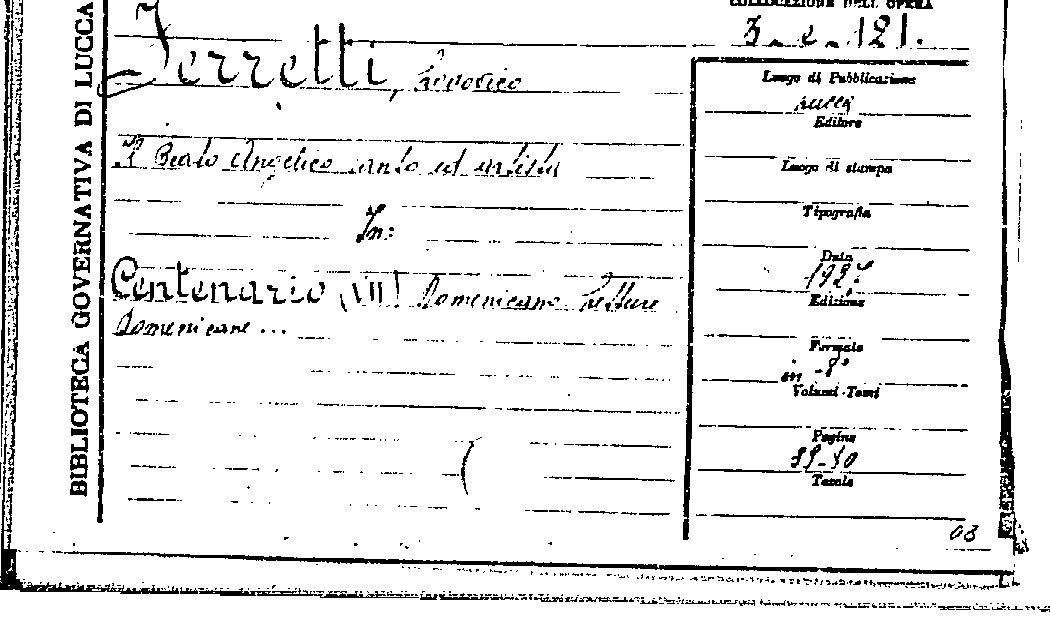 BIBLIOTECA GOVERNATIVA DI LUCCA
COLLOCAZIONE DELL'OPERA
3. e. 121.
Ferretti, Lodovico
Il Beato Angelico santo ed artista
In:
Centenario (VII) Domenicano. Letture
Domenicane...
Luogo di Pubblicazione
Lucca
Editore
Luogo di stampa
Tipografia
Data
Edizione
Formato
in-8°
Volumi-Tomi
Pagine
Tavole